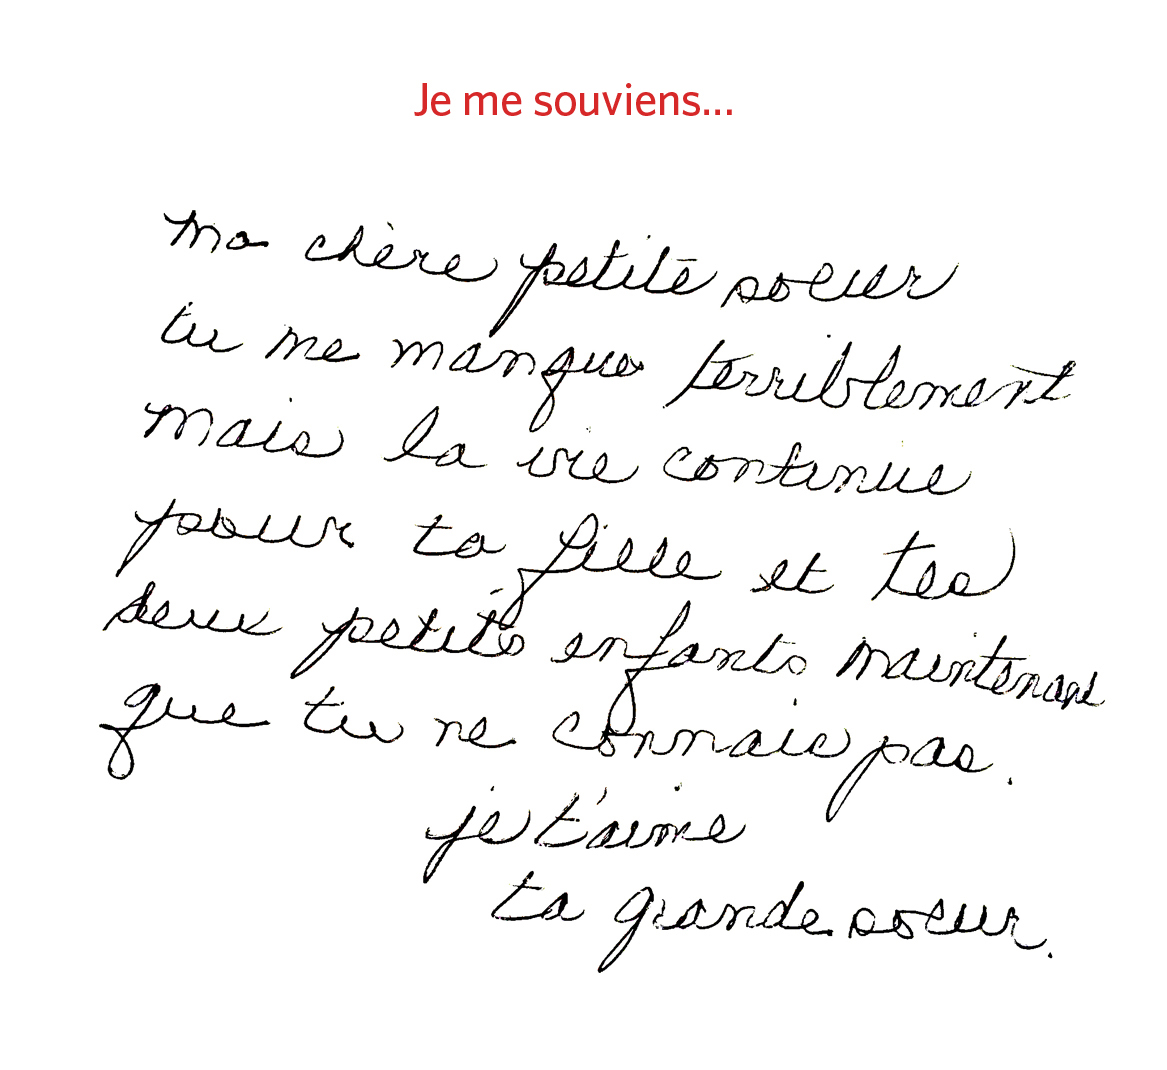 Je me souviens...
ma chère petite soeur
tu me manques terriblement
mais la vie continue
pour ta fille et tes
deux petits enfants maintenant
que tu ne connais pas.
je t'aime
ta grande soeur.